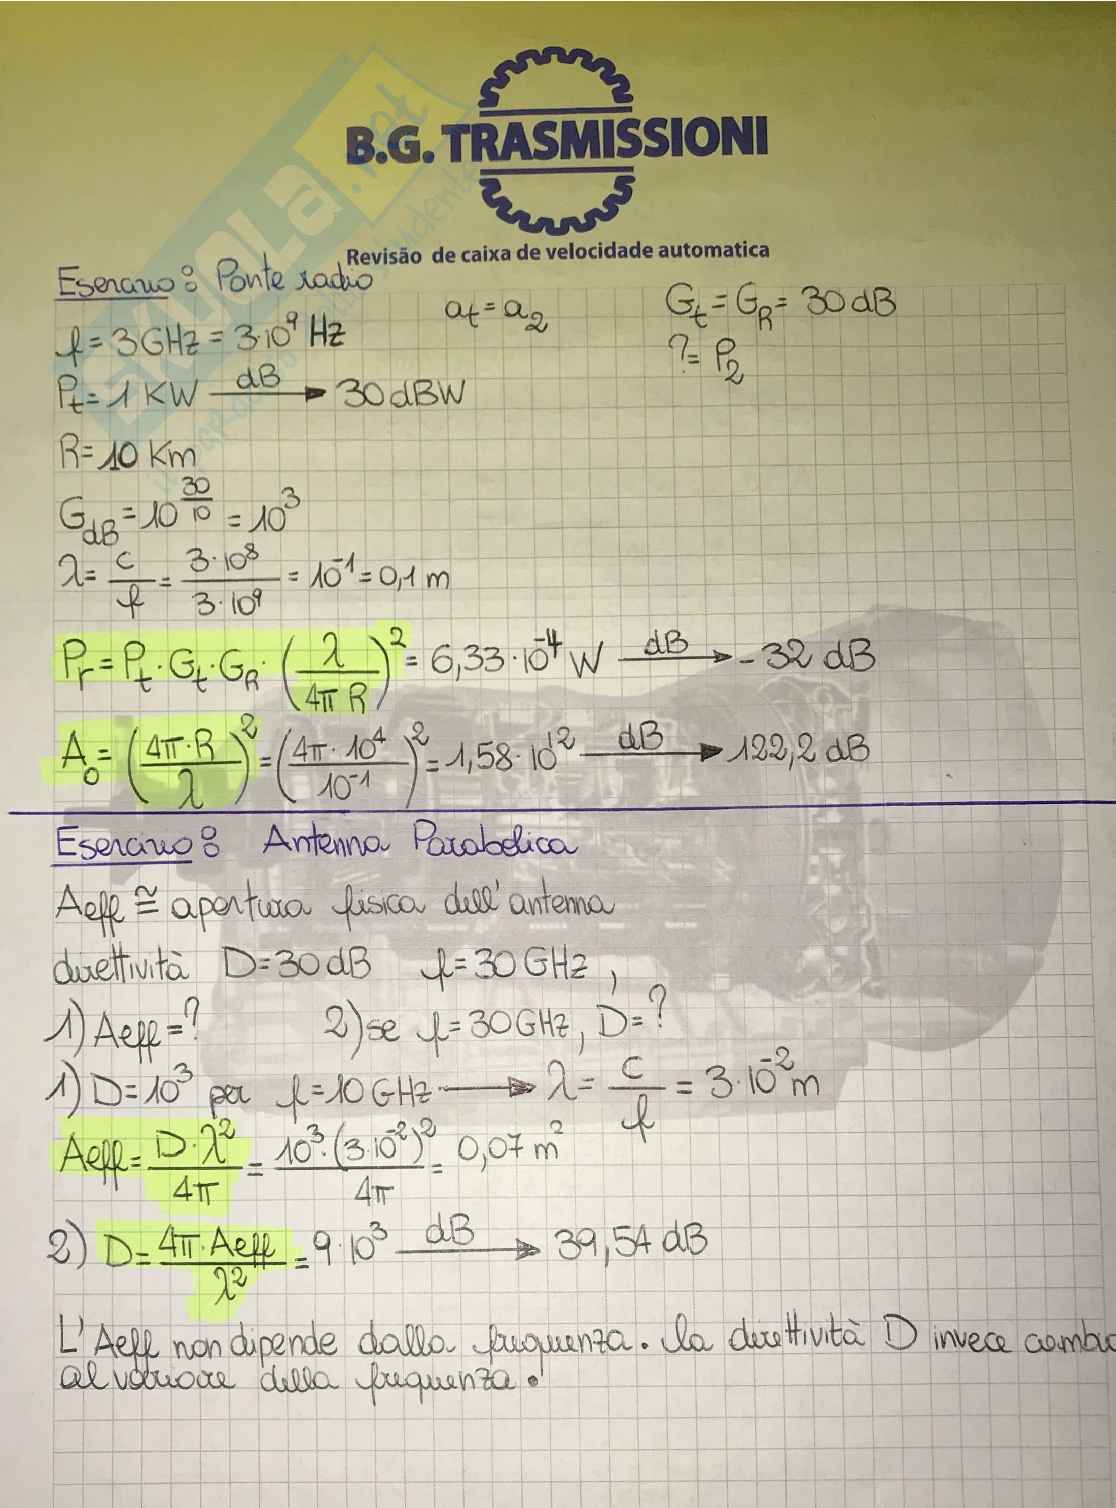 SKUOLA.net
B.G. TRASMISSIONI
Revisão de caixa de velocidade automatica
Esercizio: Ponte radio
f = 3 GHz = 3·10⁹ Hz
a_t = a_2
G_t = G_R = 30 dB
? = P_2
P_t = 1 KW —dB→ 30 dBW
R = 10 Km
G_dB = 10^(30/10) = 10³
λ = c/f = 3·10⁸/3·10⁹ = 10⁻¹ = 0,1 m
P_r = P_t · G_t · G_R · (λ/4π R)² = 6,33·10⁻⁴ W —dB→ -32 dB
A_0 = (4π·R/λ)² = (4π·10⁴/10⁻¹)² = 1,58·10¹² —dB→ 122,2 dB
Esercizio: Antenna Parabolica
Aeff ≅ apertura fisica dell'antenna
direttività D = 30 dB f = 30 GHz,
1) Aeff = ? 2) se f = 30 GHz, D = ?
1) D = 10³ per f = 10 GHz → λ = c/f = 3·10⁻² m
Aeff = D·λ²/4π = 10³·(3·10⁻²)²/4π = 0,07 m²
2) D = 4π·Aeff/λ² = 9·10³ —dB→ 39,54 dB
L'Aeff non dipende dalla frequenza. la direttività D invece cambia
al variare della frequenza.